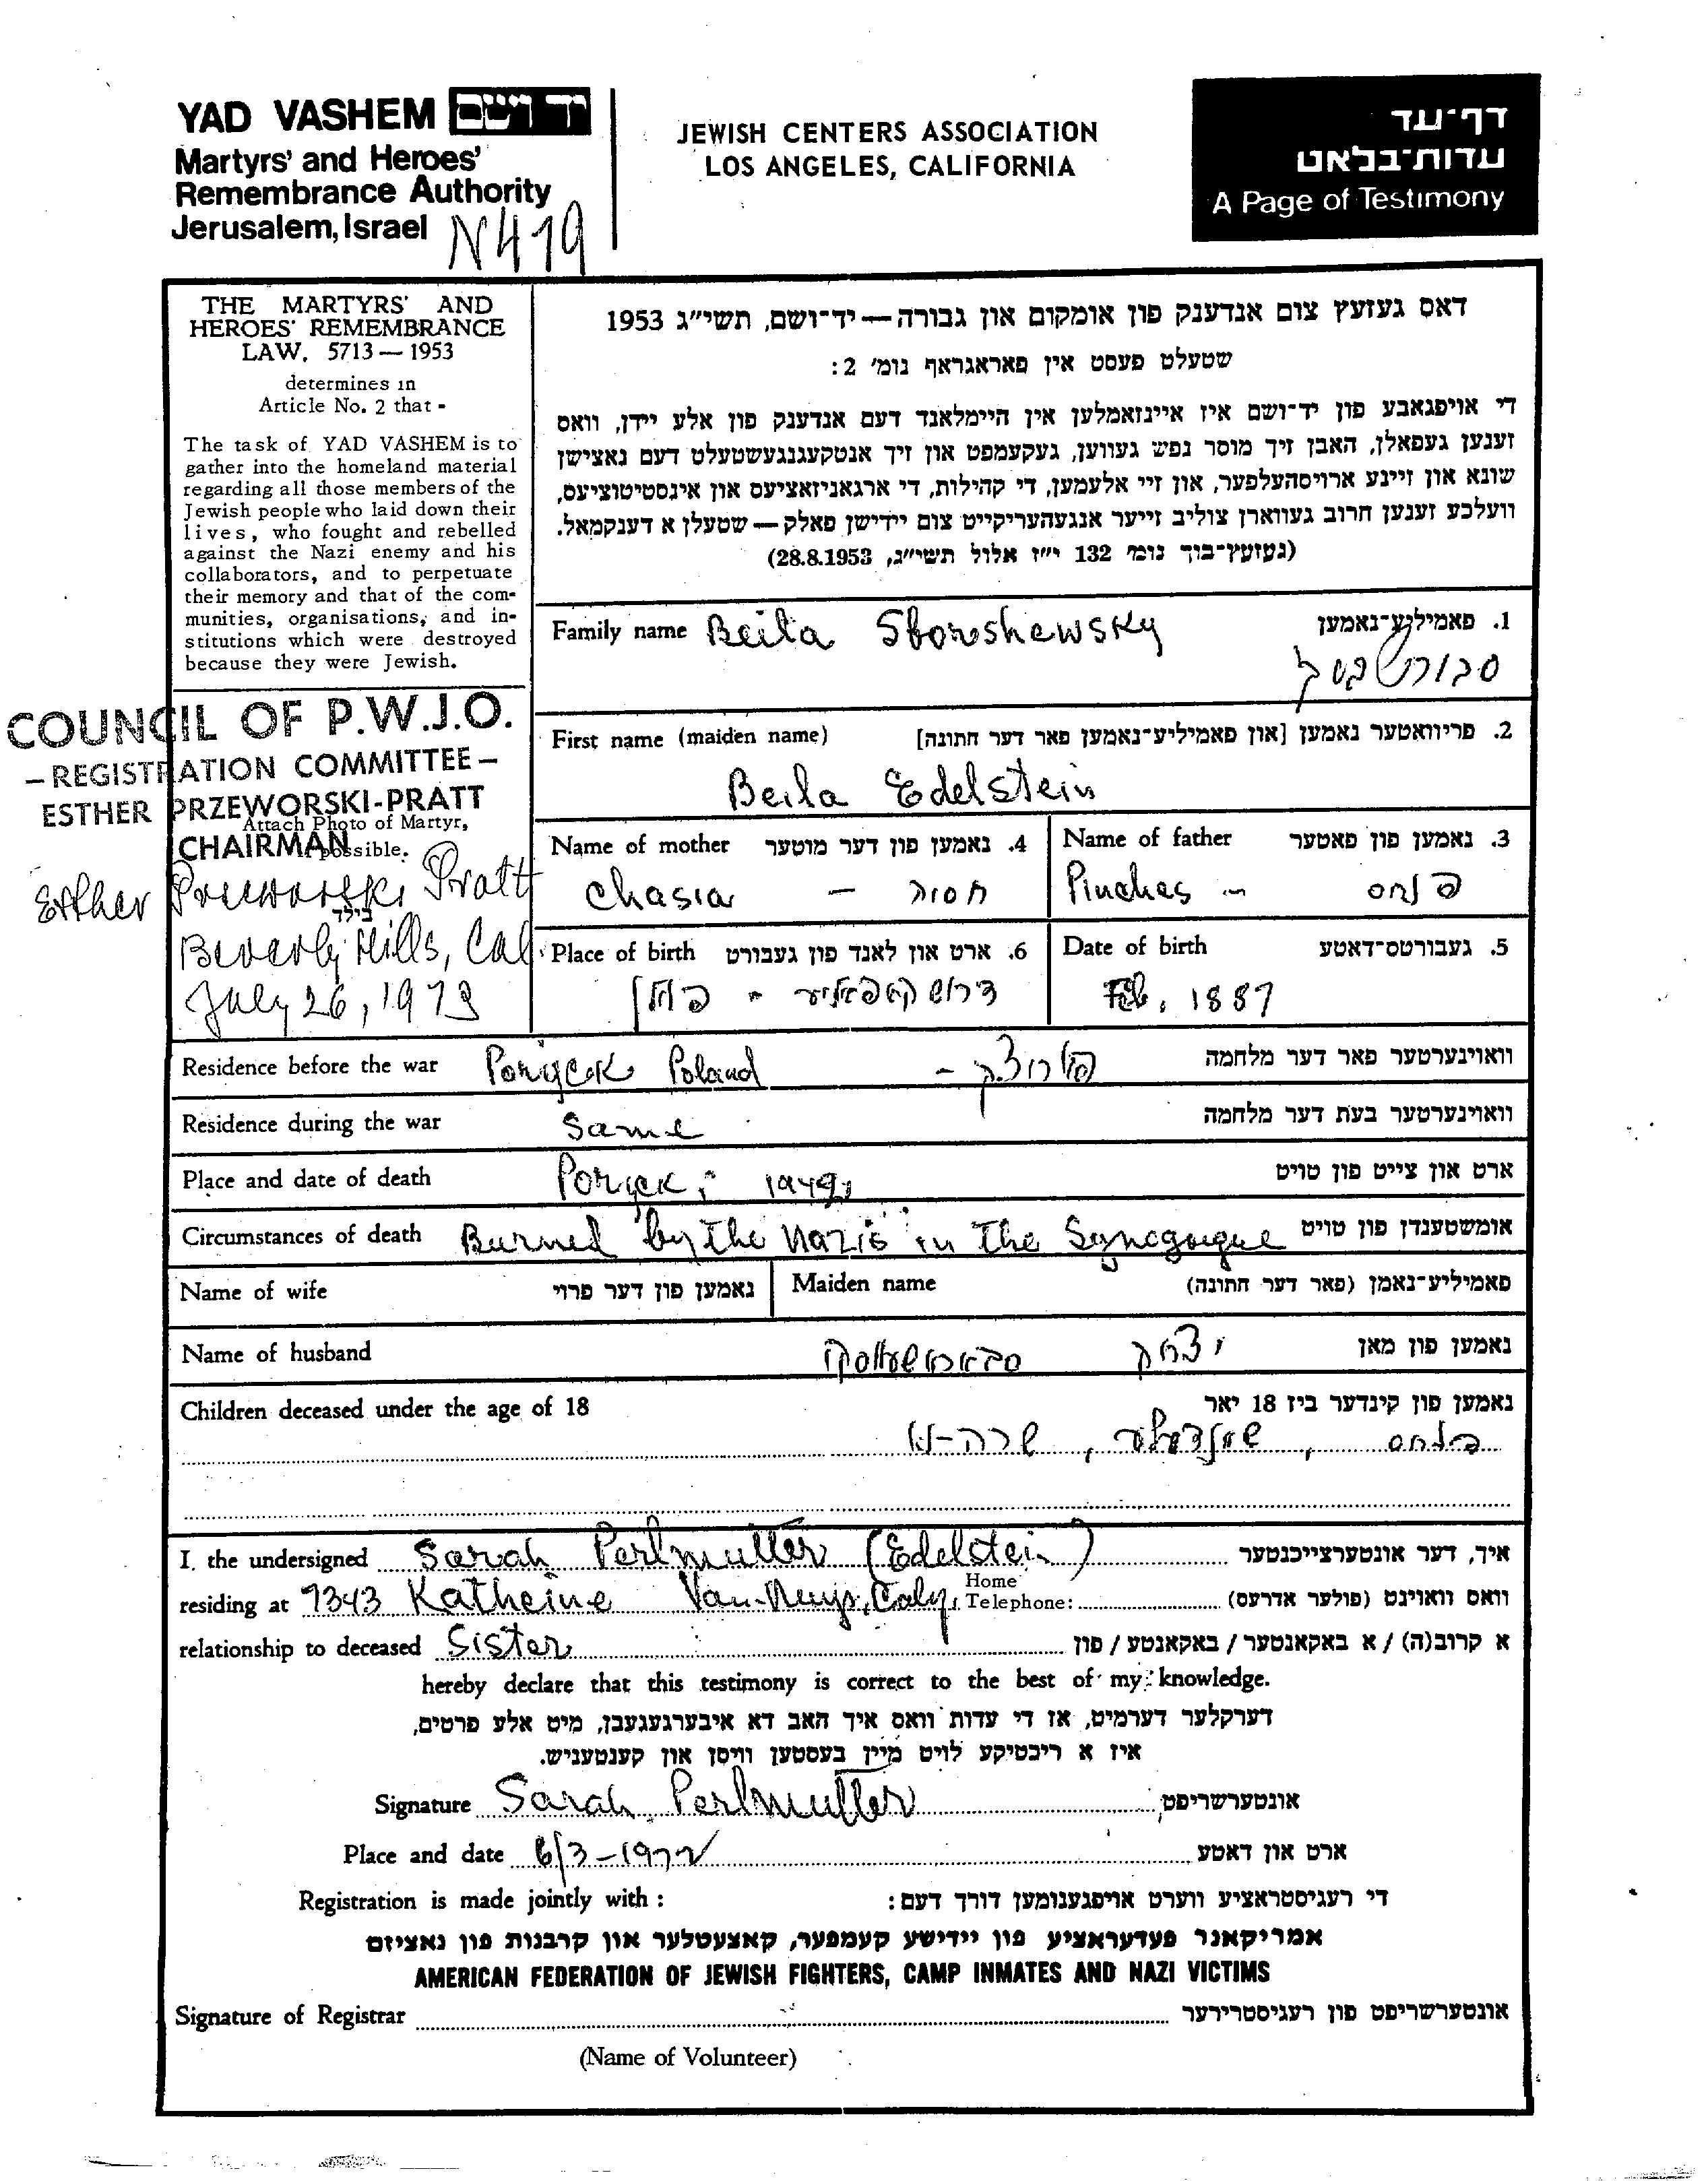 YAD VASHEM יד ושם
Martyrs' and Heroes'
Remembrance Authority
Jerusalem, Israel
N419
JEWISH CENTERS ASSOCIATION
LOS ANGELES, CALIFORNIA
דף־עד
עדות־בלאט
A Page of Testimony
THE MARTYRS' AND
HEROES' REMEMBRANCE
LAW, 5713 — 1953
determines in
Article No. 2 that -
The task of YAD VASHEM is to
gather into the homeland material
regarding all those members of the
Jewish people who laid down their
lives, who fought and rebelled
against the Nazi enemy and his
collaborators, and to perpetuate
their memory and that of the com-
munities, organisations, and in-
stitutions which were destroyed
because they were Jewish.
דאס געזעץ צום אנדענק פון אומקום און גבורה — יד־ושם, תשי״ג 1953
שטעלט פעסט אין פאראגראף נומ׳ 2:
די אויפגאבע פון יד־ושם איז איינזאמלען אין היימלאנד דעם אנדענק פון אלע יידן, וואס
זענען געפאלן, האבן זיך מוסר נפש געווען, געקעמפט און זיך אנטקעגנגעשטעלט דעם נאצישן
שונא און זיינע ארויסהעלפער, און זיי אלעמען, די קהילות, די ארגאניזאציעס און אינסטיטוציעס,
וועלכע זענען חרוב געווארן צוליב זייער אנגעהעריקייט צום יידישן פאלק — שטעלן א דענקמאל.
(געזעץ־בוך נומ׳ 132 י״ז אלול תשי״ג, 28.8.1953)
COUNCIL OF P.W.J.O.
— REGISTRATION COMMITTEE —
ESTHER PRZEWORSKI-PRATT
Attach Photo of Martyr,
CHAIRMAN possible.
Esther Przeworski Pratt
בילד
Beverly Hills, Cal.
July 26, 1973
Family name Beila Sborshewsky 1. פאמיליע־נאמען
First name (maiden name) 2. פריוואטער נאמען [און פאמיליע־נאמען פאר דער חתונה]
Beila Edelstein
Name of mother 4. נאמען פון דער מוטער
Chasia — חסיה
Name of father 3. נאמען פון פאטער
Pinches - פנחס
Place of birth 6. ארט און לאנד פון געבורט
פוילן
Date of birth 5. געבורטס־דאטע
Feb. 1887
Residence before the war Poryck Poland - וואוינערטער פאר דער מלחמה
Residence during the war Same וואוינערטער בעת דער מלחמה
Place and date of death Poryck, ארט און צייט פון טויט
Circumstances of death Burned by the Nazis in the Synagogue אומשטענדן פון טויט
Name of wife נאמען פון דער פרוי
Maiden name פאמיליע־נאמן (פאר דער חתונה)
Name of husband יצחק נאמען פון מאן
Children deceased under the age of 18 נאמען פון קינדער ביז 18 יאר
פנחס
I, the undersigned Sarah Perlmutter (Edelstein) איך, דער אונטערצייכנטער
residing at 7343 Katheine Van-Nuys, Caly, Home Telephone: וואס וואוינט (פולער אדרעס)
relationship to deceased Sister א קרוב(ה) / א באקאנטער / באקאנטע / פון
hereby declare that this testimony is correct to the best of my knowledge.
דערקלער דערמיט, אז די עדות וואס איך האב דא איבערגעגעבן, מיט אלע פרטים,
איז א ריכטיקע לויט מיין בעסטען וויסן און קענטעניש.
Signature Sarah Perlmutter אונטערשריפט
Place and date 6/3-1972 ארט און דאטע
Registration is made jointly with : די רעגיסטראציע ווערט אויפגענומען דורך דעם:
אמריקאנר פעדעראציע פון יידישע קעמפער, קאצעטלער און קרבנות פון נאציזם
AMERICAN FEDERATION OF JEWISH FIGHTERS, CAMP INMATES AND NAZI VICTIMS
Signature of Registrar אונטערשריפט פון רעגיסטרירער
(Name of Volunteer)